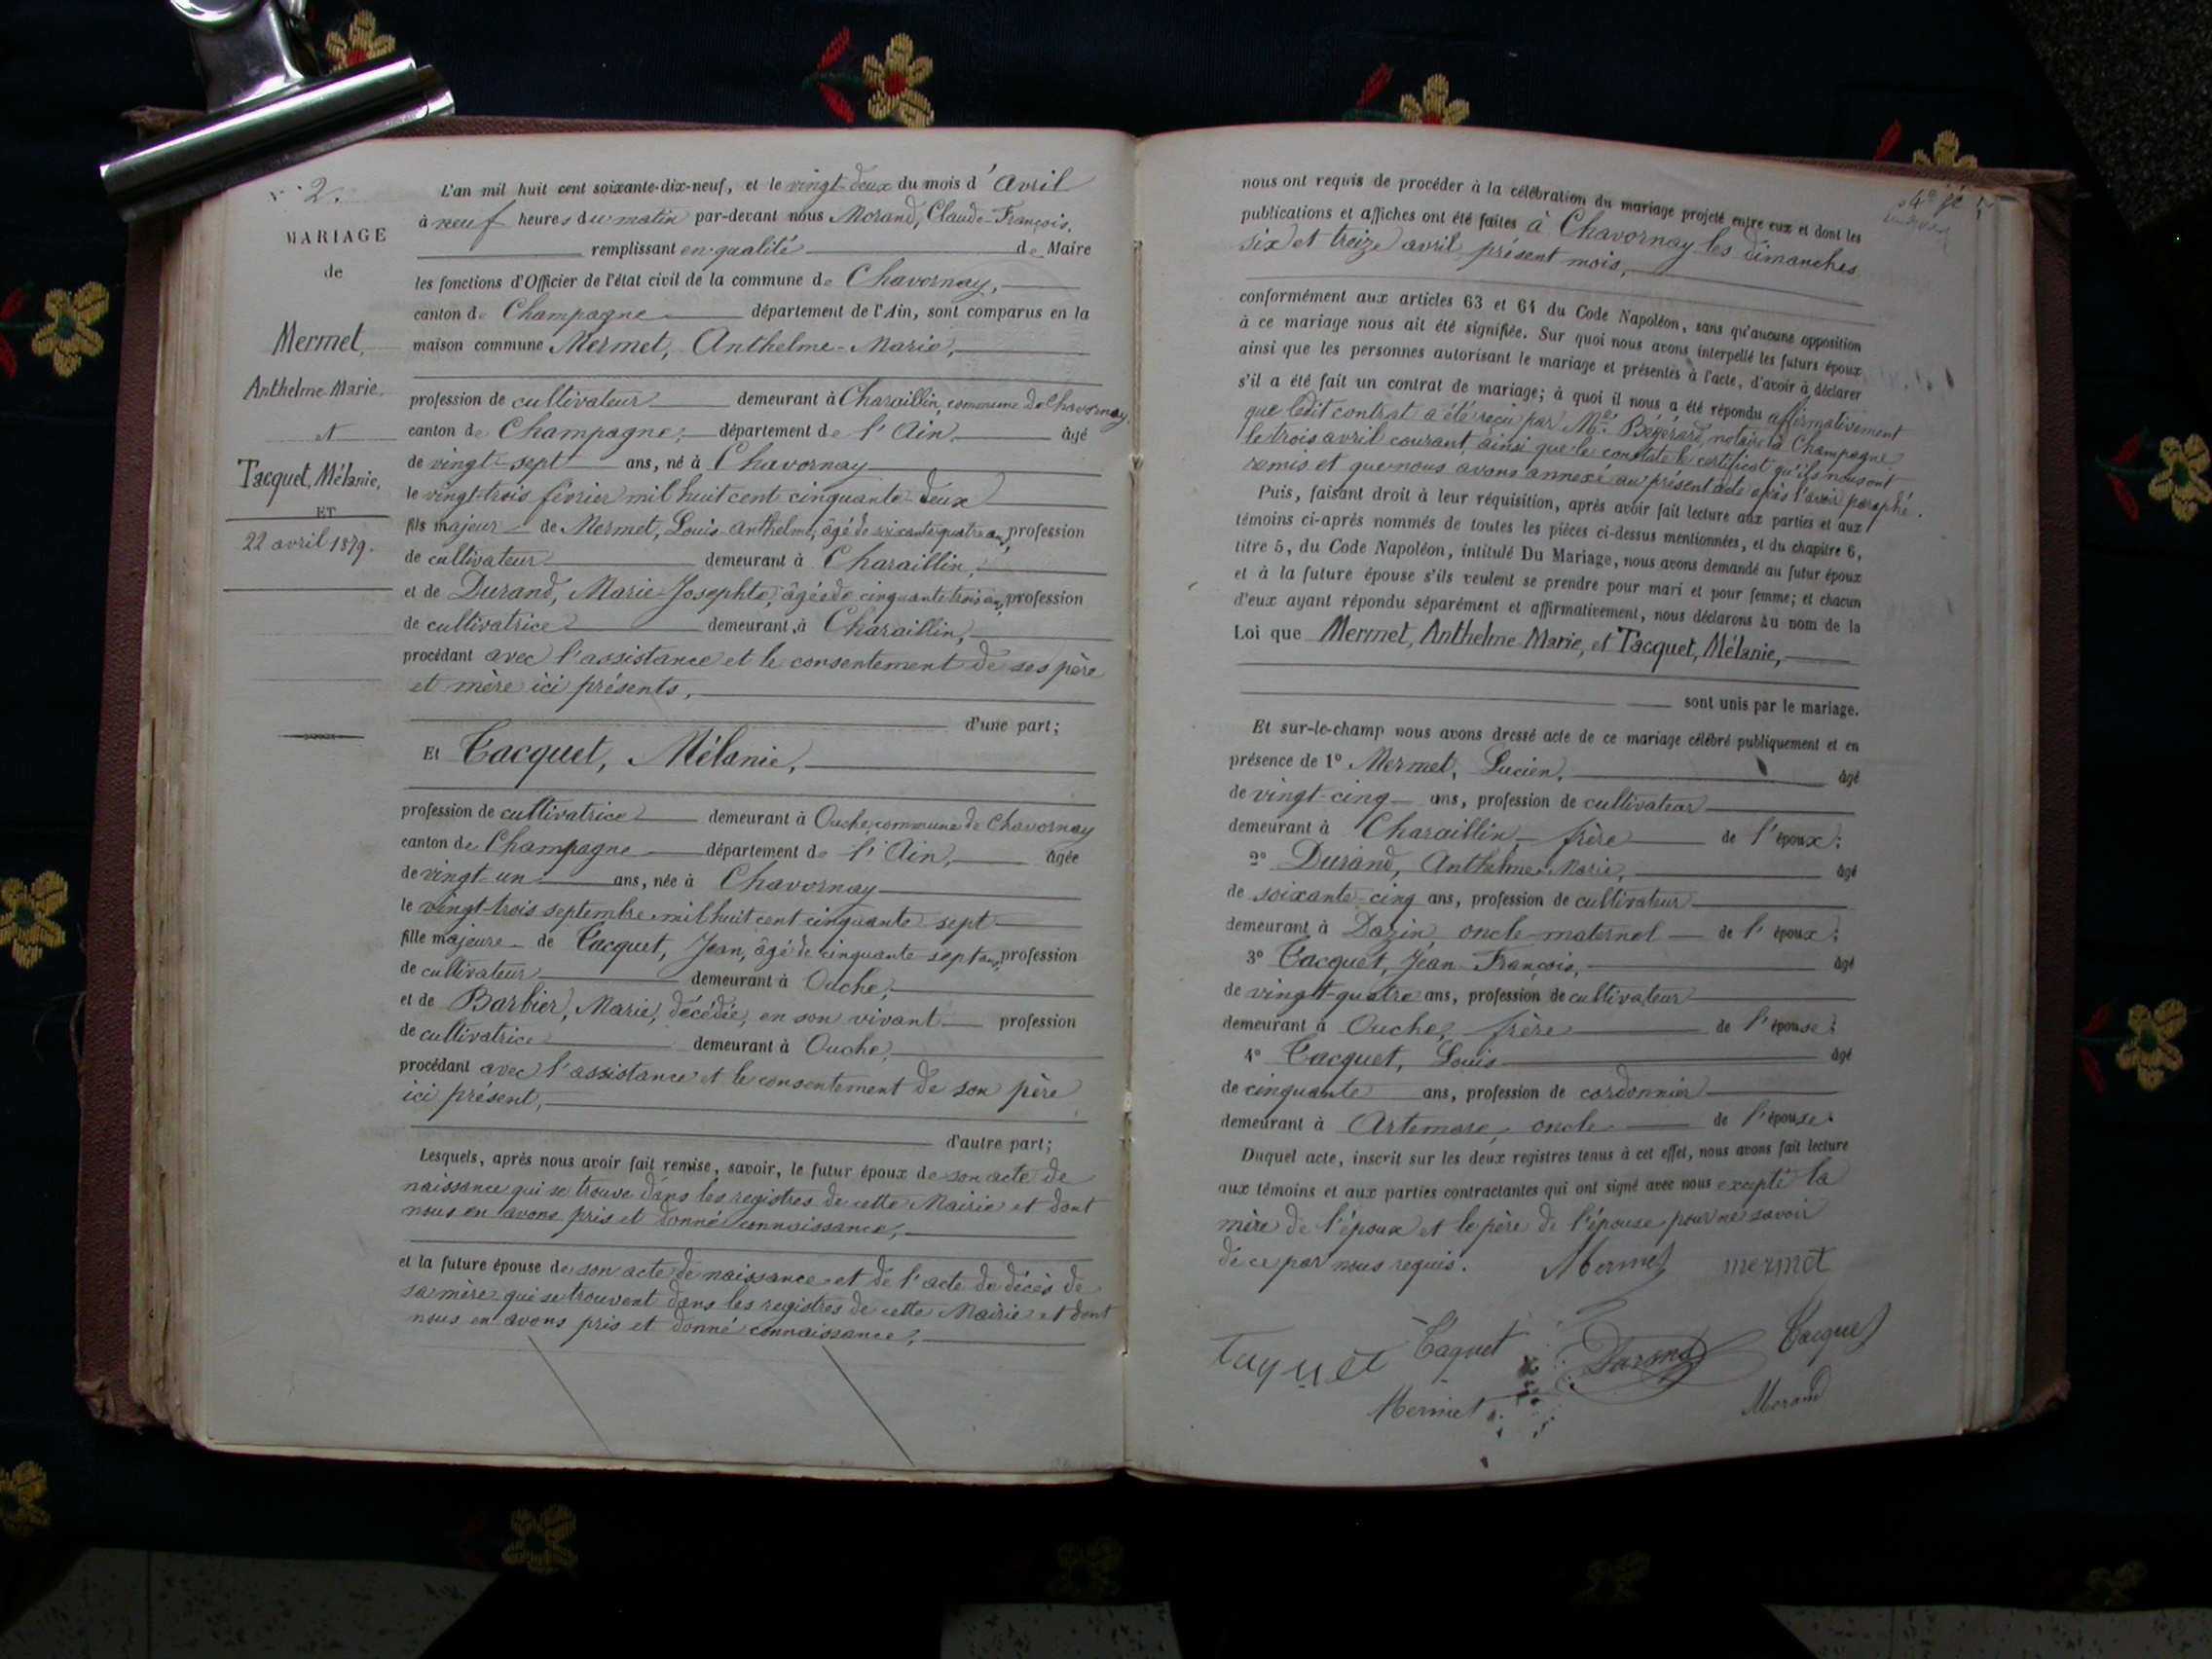 N° 2.
MARIAGE
de
Mermet,
Anthelme-Marie,
et
Tacquet, Mélanie,
ET
22 avril 1879.
L'an mil huit cent soixante-dix-neuf, et le vingt-deux du mois d'Avril
à neuf heures du matin par-devant nous Morand, Claude-François,
remplissant en qualité de Maire
les fonctions d'Officier de l'état civil de la commune de Chavornay,
canton de Champagne département de l'Ain, sont comparus en la
maison commune Mermet, Anthelme-Marie,
profession de cultivateur demeurant à Charaillin, commune de Chavornay,
canton de Champagne, département de l'Ain, âgé
de vingt-sept ans, né à Chavornay
le vingt-trois février mil huit cent cinquante-deux
fils majeur de Mermet, Louis-Anthelme, âgé de soixante quatre ans, profession
de cultivateur demeurant à Charaillin,
et de Durand, Marie-Josephte, âgée de cinquante trois ans, profession
de cultivatrice demeurant à Charaillin,
procédant avec l'assistance et le consentement de ses père
et mère ici présents,
d'une part;
Et Tacquet, Mélanie,
profession de cultivatrice demeurant à Ouche, commune de Chavornay
canton de Champagne département de l'Ain, âgée
de vingt-un ans, née à Chavornay
le vingt-trois septembre mil huit cent cinquante-sept
fille majeure de Tacquet, Jean, âgé de cinquante-sept ans, profession
de cultivateur demeurant à Ouche,
et de Barbier, Marie, décédée, en son vivant profession
de cultivatrice demeurant à Ouche,
procédant avec l'assistance et le consentement de son père
ici présent,
d'autre part;
Lesquels, après nous avoir fait remise, savoir, le futur époux de son acte de
naissance qui se trouve dans les registres de cette Mairie et dont
nous en avons pris et donné connaissance,
et la future épouse de son acte de naissance et de l'acte de décès de
sa mère qui se trouvent dans les registres de cette Mairie et dont
nous en avons pris et donné connaissance,
nous ont requis de procéder à la célébration du mariage projeté entre eux et dont les
publications et affiches ont été faites à Chavornay les dimanches
six et treize avril présent mois,
conformément aux articles 63 et 64 du Code Napoléon, sans qu'aucune opposition
à ce mariage nous ait été signifiée. Sur quoi nous avons interpellé les futurs époux
ainsi que les personnes autorisant le mariage et présentes à l'acte, d'avoir à déclarer
s'il a été fait un contrat de mariage; à quoi il nous a été répondu affirmativement
que ledit contrat a été reçu par Me notaire à Champagne
le trois avril courant, ainsi que le constate le certificat qu'ils nous ont
remis et que nous avons annexé au présent acte après l'avoir paraphé.
Puis, faisant droit à leur réquisition, après avoir fait lecture aux parties et aux
témoins ci-après nommés de toutes les pièces ci-dessus mentionnées, et du chapitre 6,
titre 5, du Code Napoléon, intitulé Du Mariage, nous avons demandé au futur époux
et à la future épouse s'ils veulent se prendre pour mari et pour femme; et chacun
d'eux ayant répondu séparément et affirmativement, nous déclarons au nom de la
Loi que Mermet, Anthelme-Marie, et Tacquet, Mélanie,
sont unis par le mariage.
Et sur-le-champ nous avons dressé acte de ce mariage célébré publiquement et en
présence de 1° Mermet, Lucien, âgé
de vingt-cinq ans, profession de cultivateur
demeurant à Charaillin, frère de l'époux;
2° Durand, Anthelme-Marie, âgé
de soixante-cinq ans, profession de cultivateur
demeurant à Dazin, oncle maternel de l'époux;
3° Tacquet, Jean-François, âgé
de vingt-quatre ans, profession de cultivateur
demeurant à Ouche, frère de l'épouse;
4° Tacquet, Louis âgé
de cinquante ans, profession de cordonnier
demeurant à Artemare, oncle de l'épouse.
Duquel acte, inscrit sur les deux registres tenus à cet effet, nous avons fait lecture
aux témoins et aux parties contractantes qui ont signé avec nous excepté la
mère de l'époux et le père de l'épouse pour ne savoir
de ce par nous requis. Mermet mermet
Taquet Taquet Durand Tacquet
Mermet Morand